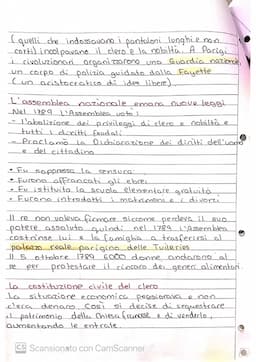 ( quelli che indossavano i pantaloni lunghi e non
corti) incolpavano il clero e la nobiltà. A Parigi
i rivoluzionari organizzarono una Guardia nazionale
un corpo di polizia guidato dalla Fayette
( un aristocratico di idee libere).
L'assemblea nazionale emana nuove leggi
Nel 1789 l'Assemblea votò:
- l'abolizione dei privilegi di clero e nobiltà e
tutti i diritti feudali
- Proclamò la Dichiarazione dei diritti dell'uomo
e del cittadino
• Fu soppressa la censura
• Furono affrancati gli ebrei
• Fu istituita la scuola elementare gratuita
• Furono introdotti i matrimoni e i divorzi
Il re non voleva firmare siccome perdeva il suo
potere assoluto quindi nel 1789 l'Assemblea
costrinse lui e la famiglia a trasferirsi al
palazzo reale parigino delle Tuileries
Il 5 ottobre 1789 6000 donne andarono al
re per protestare il rincaro dei generi alimentari.
La costituzione civile del clero
La situazione economica peggiorava e non
c'era denaro così si decise di sequestrare
il patrimonio della Chiesa francese e di venderlo,
aumentando le entrate.
CS Scansionato con CamScanner